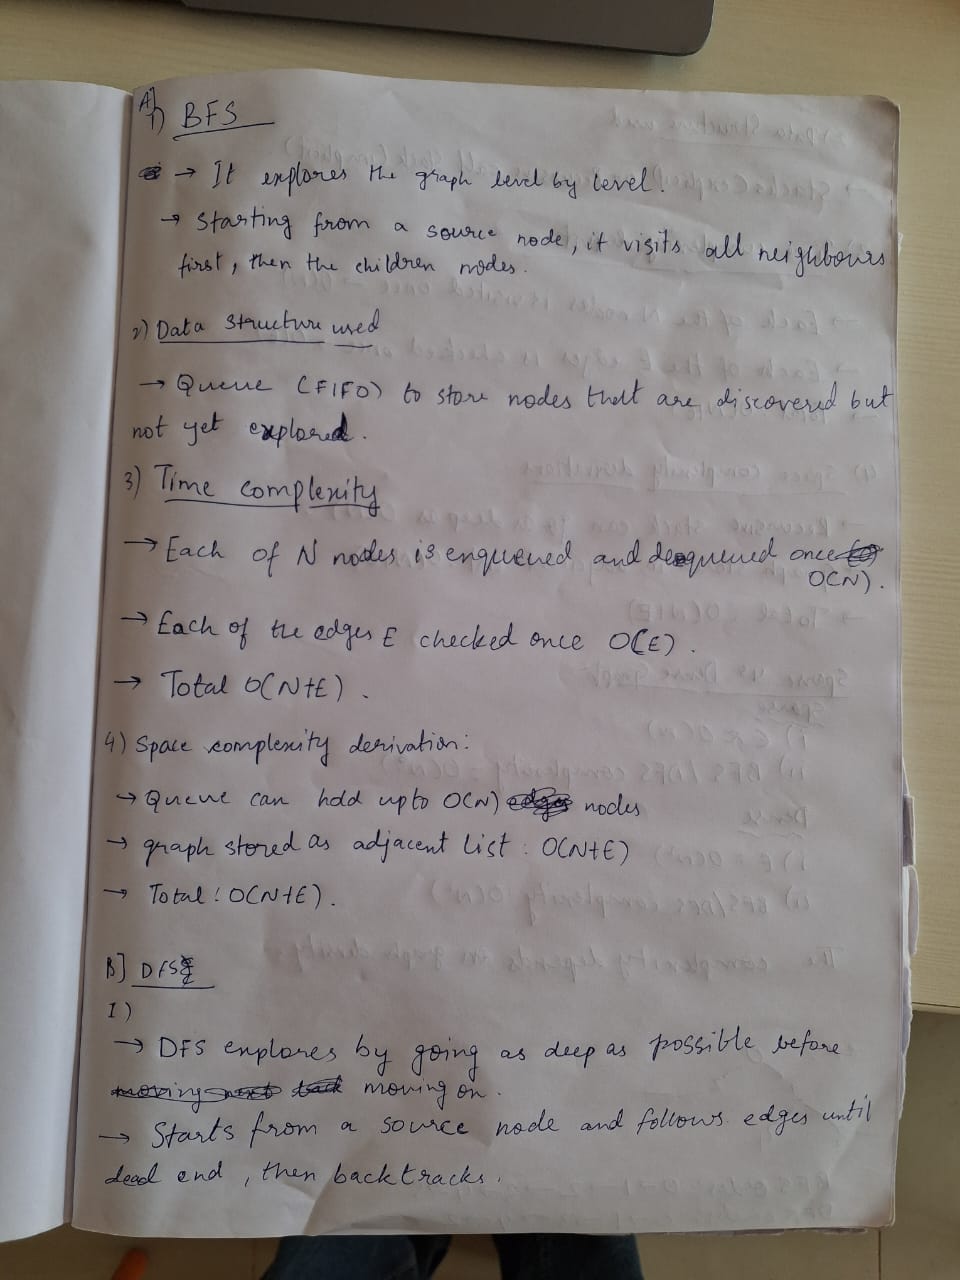 A]
1) BFS
→ It explores the graph level by level.
→ Starting from a source node, it visits all neighbours
first, then the children nodes.
2) Data structure used
→ Queue (FIFO) to store nodes that are discovered but
not yet explored.
3) Time complexity
→ Each of N nodes is enqueued and dequeued once
O(N).
→ Each of the edges E checked once O(E).
→ Total O(N+E).
4) Space complexity derivation:
→ Queue can hold upto O(N) nodes
→ graph stored as adjacent list: O(N+E)
→ Total: O(N+E).
B] DFS
1)
→ DFS explores by going as deep as possible before
moving on.
→ Starts from a source node and follows edges until
dead end, then backtracks.